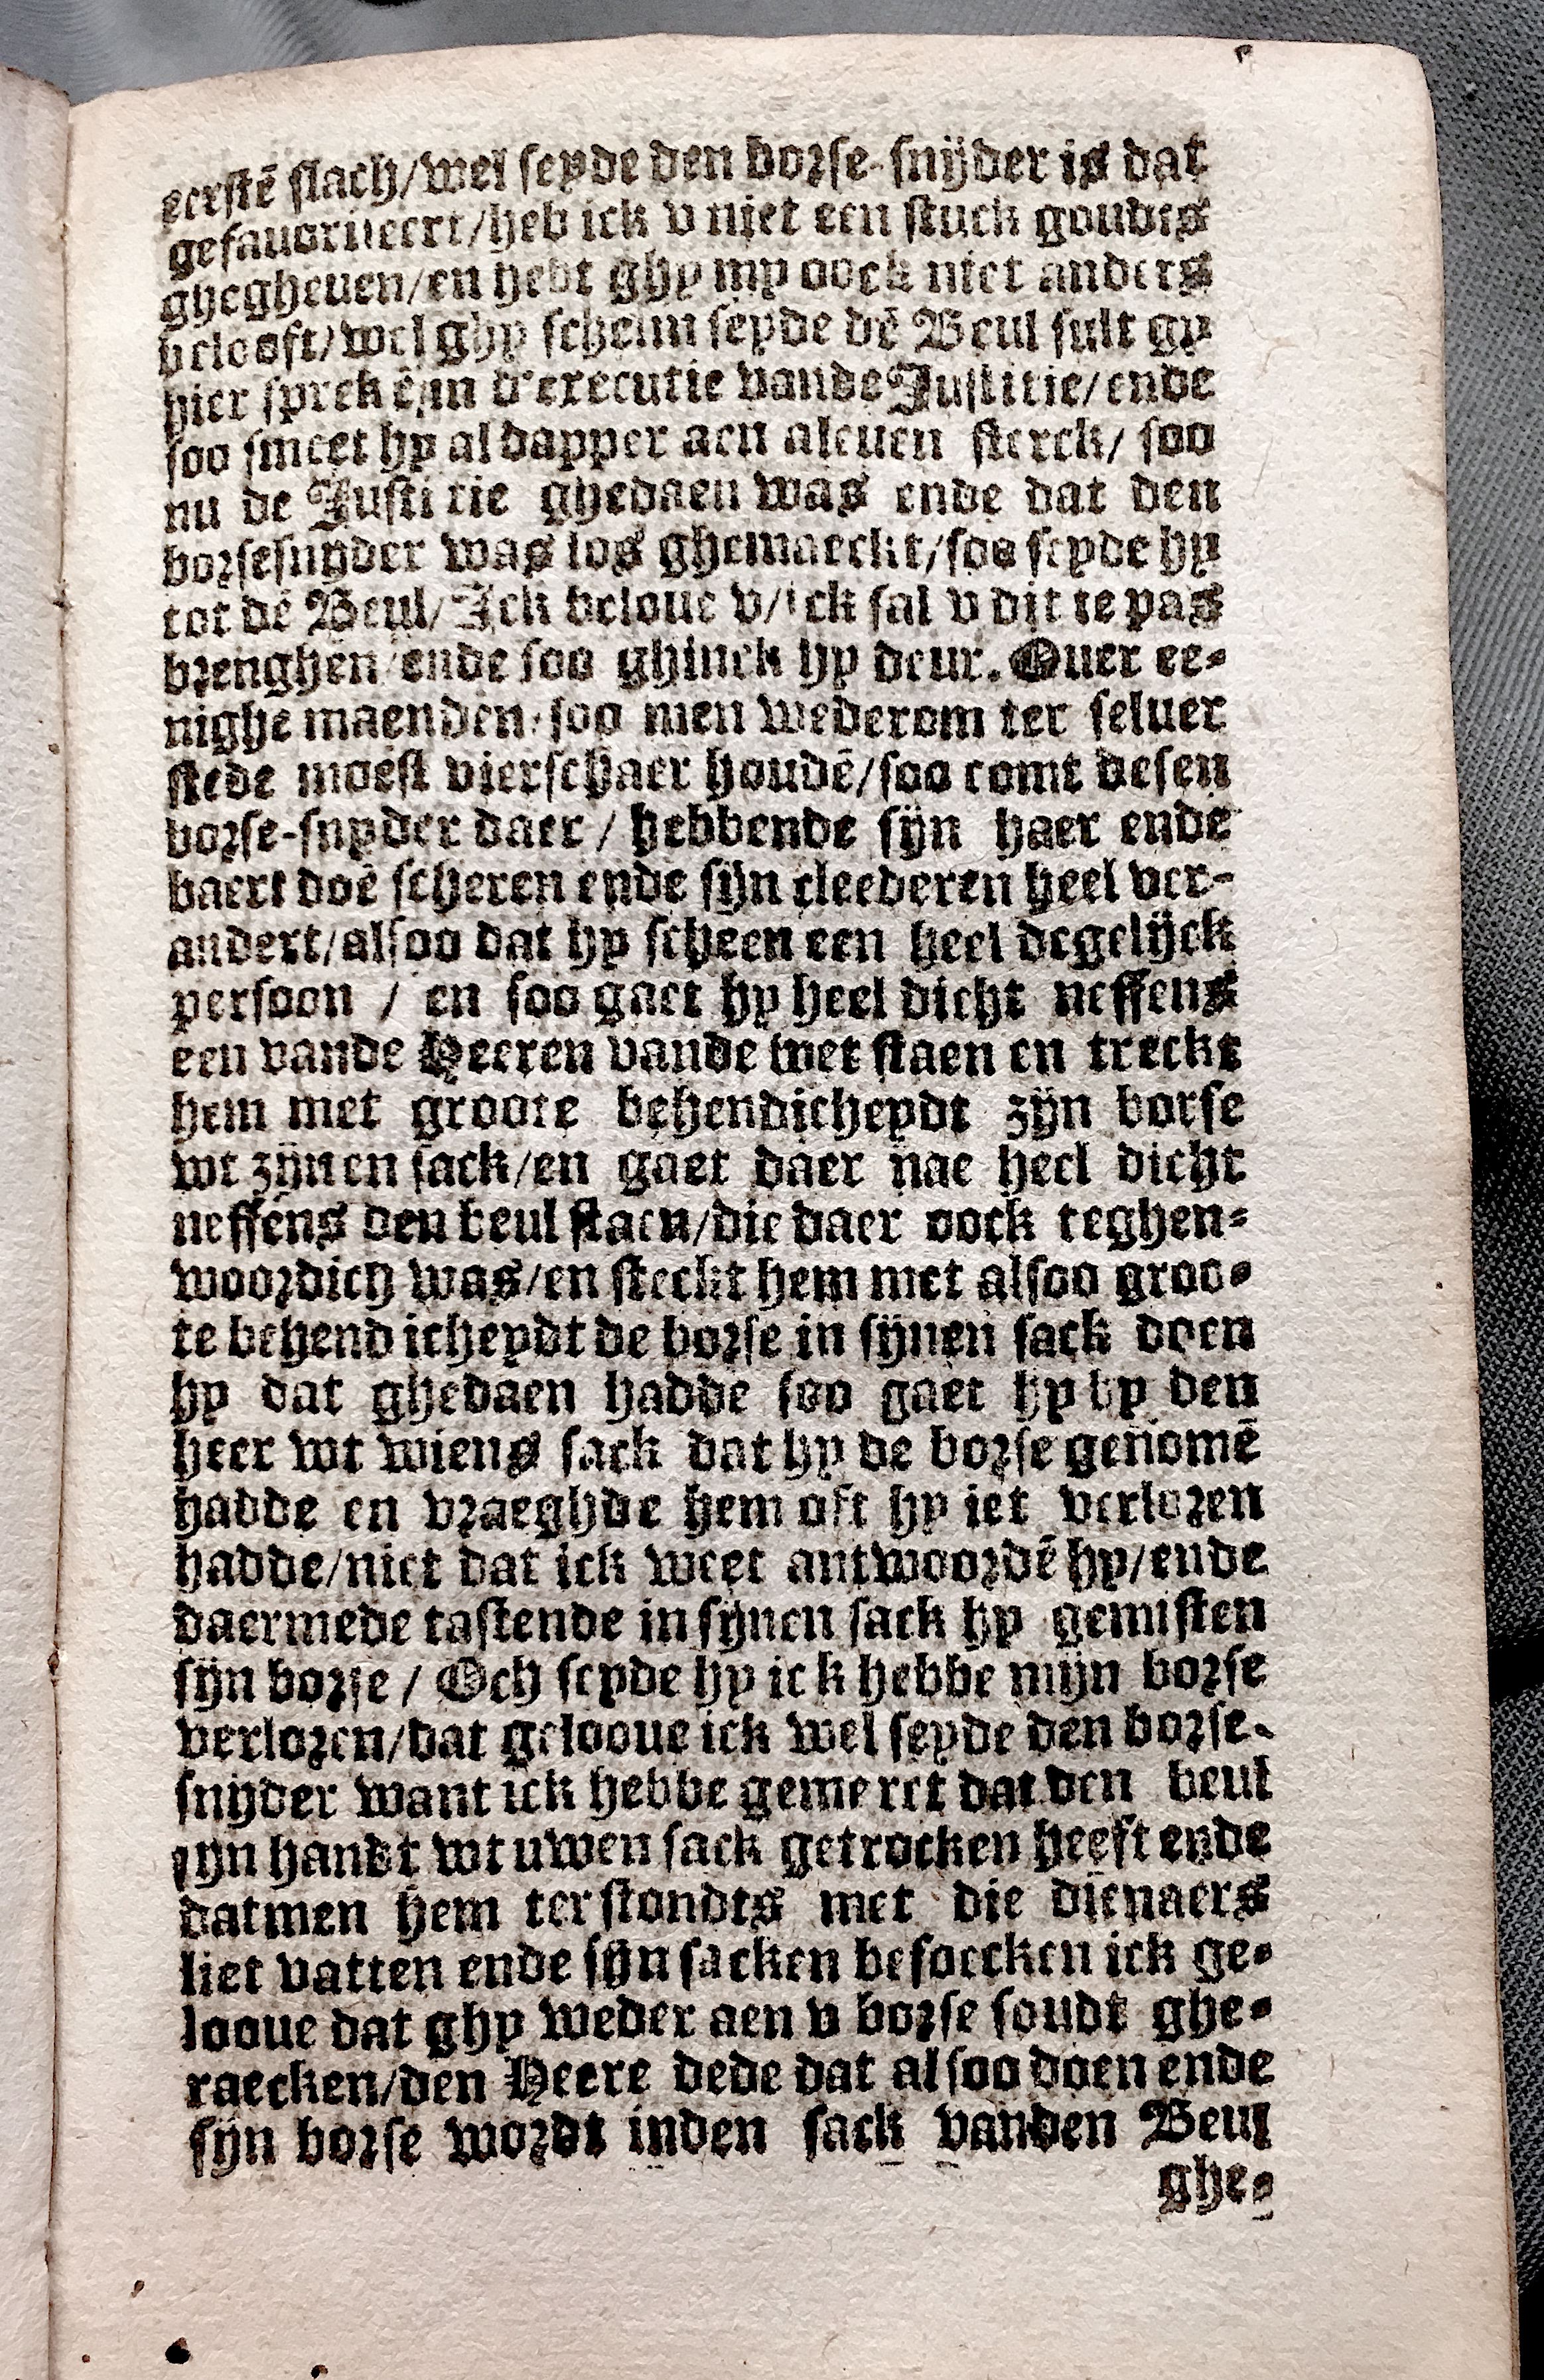 eerstē slach/wel seyde den borse-snijder is dat
gefauoriseert/heb ick v niet een stuck goudts
ghegheuen/en hebt ghy my oock niet anders
belooft/wel ghy schelm seyde dē Beul sult gy
hier sprekē/in d'executie vande Justitie/ende
soo smeet hy al dapper aen aleuen sterck/ soo
nu de Justitie ghedaen was ende dat den
borsesnyder was los ghemaeckt/soo seyde hy
tot dē Beul/Ick beloue v/ick sal v dit te pas
brenghen/ende soo ghinck hy deur. Ouer ee-
nighe maenden soo men wederom ter seluer
stede moest vierschaer houdē/soo comt desen
borse-snyder daer / hebbende sijn haer ende
baert doē scheren ende sijn cleederen heel ver-
andert/alsoo dat hy scheen een heel degelijck
persoon / en soo gaet hy heel dicht neffens
een vande Heeren vande wet staen en treckt
hem met groote behendicheydt zijn borse
wt zijnen sack/en gaet daer nae heel dicht
neffens den beul staen/die daer oock teghen-
woordich was/en steckt hem met alsoo groo-
te behendicheydt de borse in sijnen sack doen
hy dat ghedaen hadde soo gaet hy by den
heer wt wiens sack dat hy de borse genomē
hadde en vraeghde hem oft hy iet verloren
hadde/niet dat ick weet antwoordē hy/ende
daermede tastende in sijnen sack hy gemisten
sijn borse / Och seyde hy ick hebbe mijn borse
verloren/dat gelooue ick wel seyde den borse-
snijder want ick hebbe gemerct dat den beul
sijn handt wt uwen sack getrocken heeft ende
datmen hem terstondts met die dienaers
liet vatten ende sijn sacken besoecken ick ge-
looue dat ghy weder aen v borse soudt ghe-
raecken/den Heere dede dat alsoo doen ende
sijn borse wordt inden sack vanden Beul
ghe-